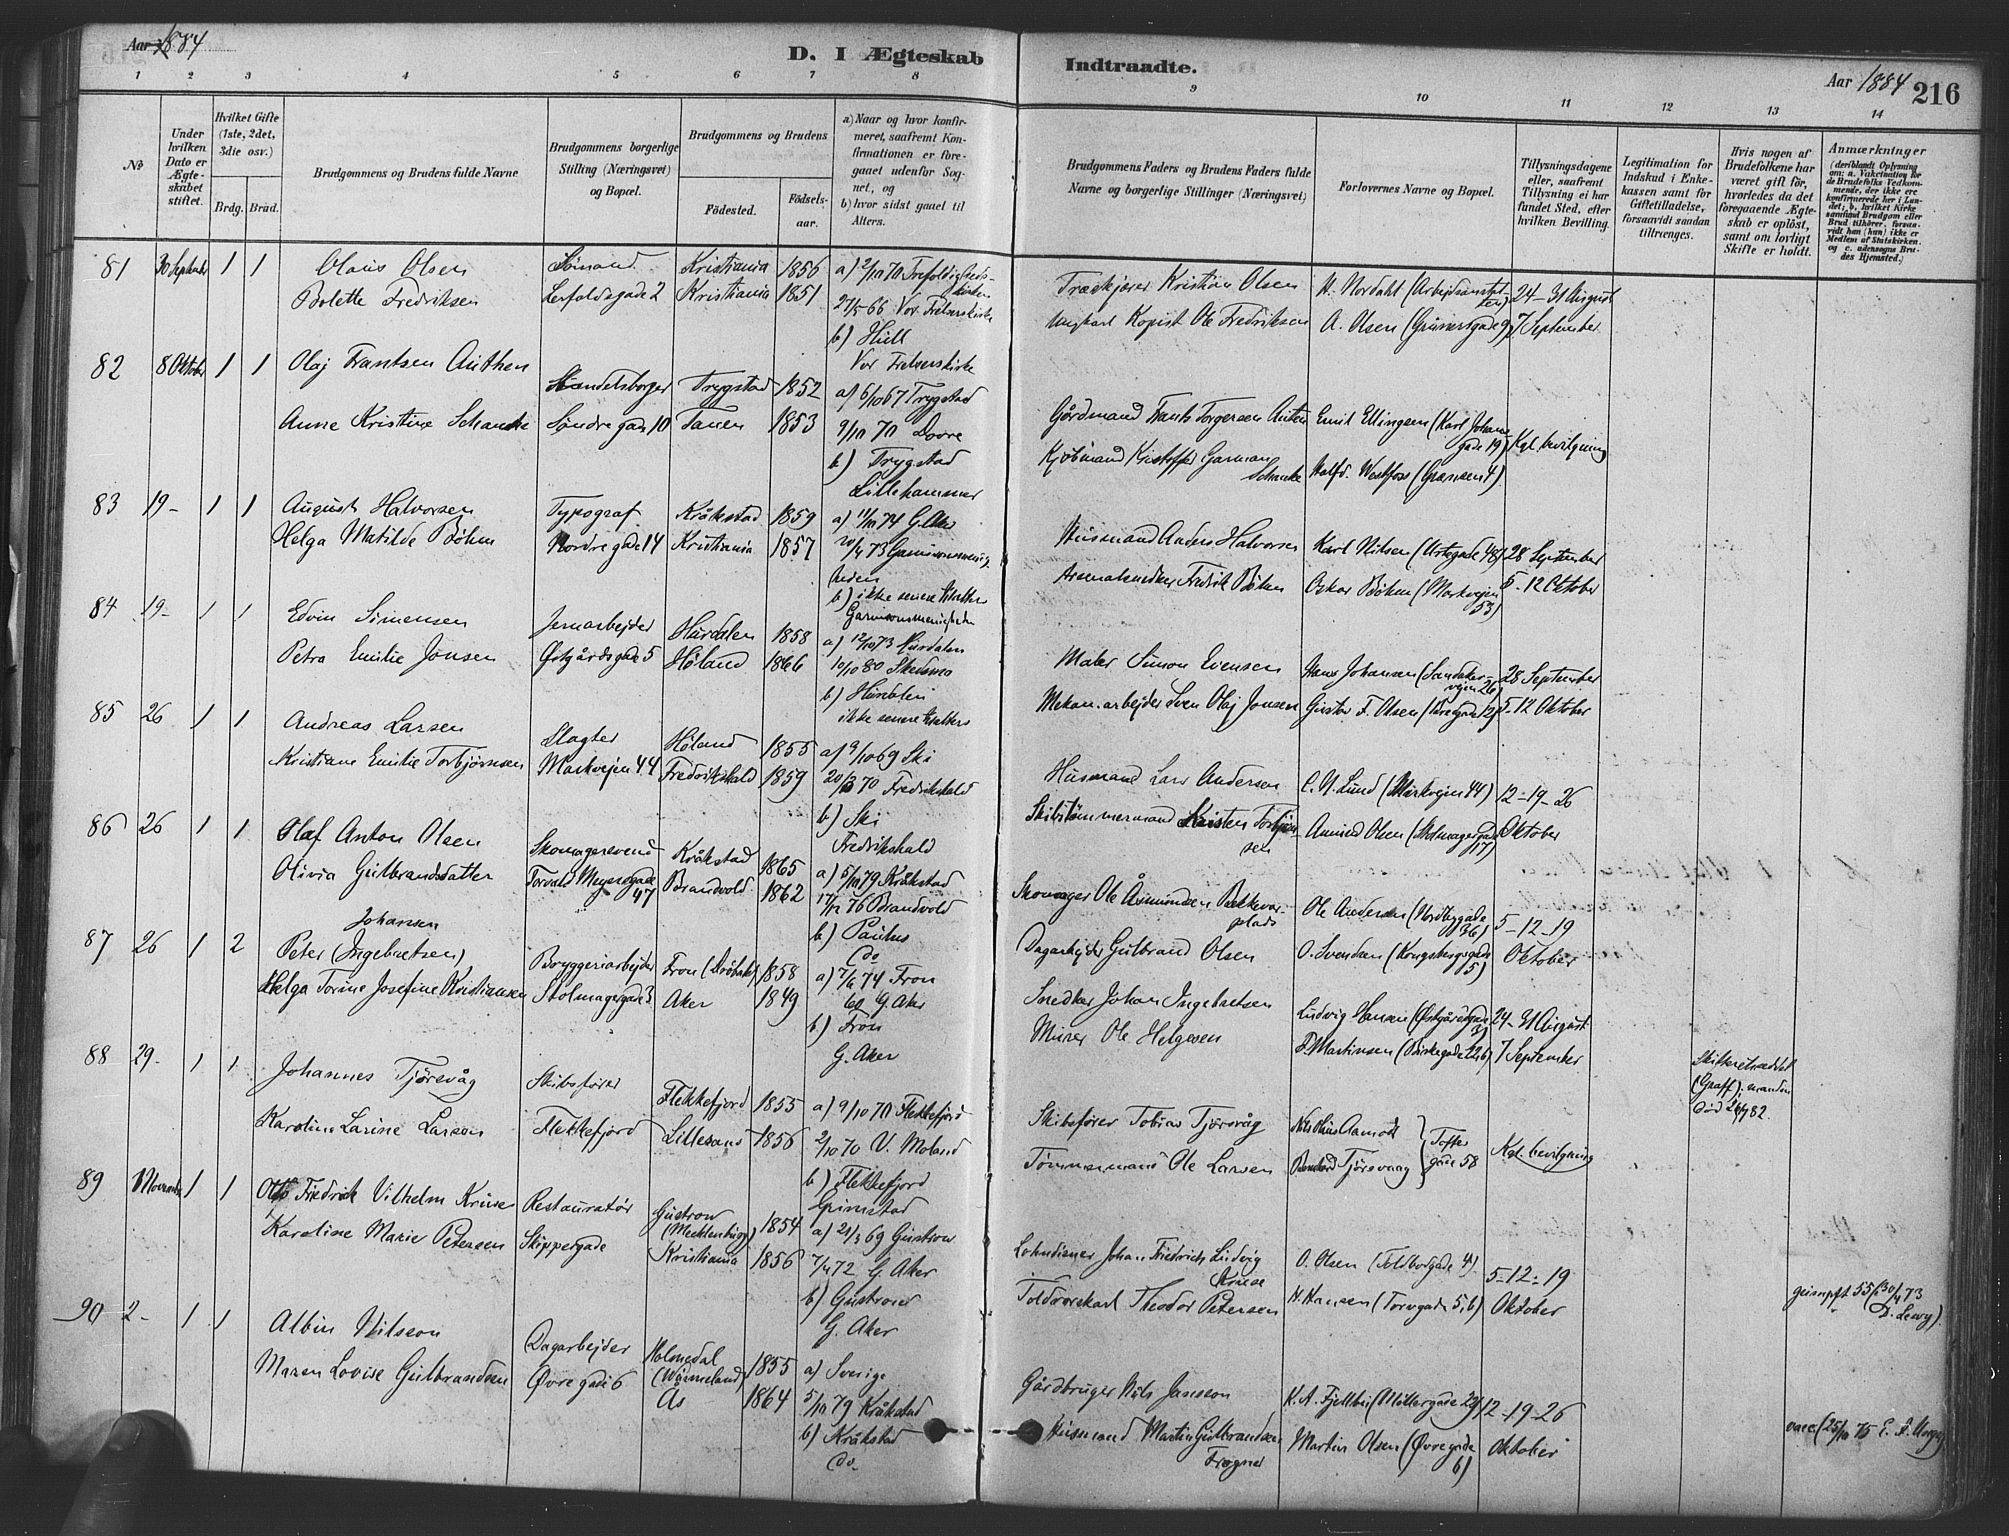 Aar 1884
D. I Ægteskab Indtraadte.
Aar 1884 216
1 2 3 4 5 6 7 8 9 10 11 12 13 14
No
Under hvilken Dato er Ægteskabet stiftet.
Hvilket Gifte (1ste, 2det, 3die osv.)
Brdg. Brud.
Brudgommens og Brudens fulde Navne
Brudgommens borgerlige Stilling (Næringsvei) og Bopæl.
Brudgommens og Brudens
Födested.
Födselsaar.
a) Naar og hvor konfirmeret, saafremt Konfirmationen er foregaaet udenfor Sognet, og
b) hvor sidst gaaet til Alters.
Brudgommens Faders og Brudens Faders fulde Navne og borgerlige Stillinger (Næringsvei)
Forlovernes Navne og Bopæl.
Tillysningsdagene eller, saafremt Tillysning ei har fundet Sted, efter hvilken Bevilling.
Legitimation for Indskud i Enkekassen samt for Giftetilladelse, forsaavidt saadan tiltrænges.
Hvis nogen af Brudefolkene har været gift för, hvorledes da det foregaaende Ægteskab er oplöst, samt om lovligt Skifte er holdt.
Anmærkninger
(deriblandt Oplysning om: a. Vakcination for de Brudefolks Vedkommende, der ikke ere konfirmerede her i Landet; b. hvilket Kirkesamfund Brudgom eller Brud tilhører, forsaavidt han (hun) ikke er Medlem af Statskirken, og c. udensogns Brudes Hjemsted.)
81 30 September 1 1 Olaus Olsen Sømand Kristiania 1856 a) 2/10 70 Trefoldighedskirken
Bolette Fredriksen Kristiania 1851 27/5 66 Vor Frelserskirke
b) Hull
Vor Frelserskirke
Kristian Olsen N. Nordahl (Arbejdsanstalten) 24-31 August
Kopist Ole Fredriksen A. Olsen (Grünersgade 9) 7 September
82 8 Oktober 1 1 Olaf Frantsen Authen Handelsborger Trygstad 1852 a) 6/10 67 Trygstad
Anne Kristine Schancke Søndregade 10 Tanen 1853 9/10 70 Dovre
b) Trygstad
Lillehammer
Gårdmand Frants Torgersen Auten Emil Ellingsen (Karl Johans gade 19) Kgl. bevilgning
Kjøbmand Kristoffer Garman Schancke Halfd. Westfoss (Grænsen 4)
83 19- 1 1 August Halvorsen Typograf Kråkstad 1859 a) 11/10 74 G. Aker
Helga Matilde Bøhm Nordregade 14 Kristiania 1857 20/4 73 Garnisonsmenigheden
b) ikke senere til alters
Garnisonsmenigheden
Husmand Anders Halvorsen Karl Nilsen (Urtegade 48) 28 September
Fredrik Bøhm Oskar Bøhm (Markvejen 53) 5-12 Oktober
84 19- 1 1 Edvin Simensen Jernarbejder Hurdalen 1858 a) 12/10 73 Hurdalen
Petra Emilie Jonsen Østgårdsgade 5 Høland 1866 10/10 80 Skedsmo
b) Hurdalen
ikke senere til alters
Maler Simon Evensen Hans Johansen (Sandakervejen 26) 28 September
Mekan. arbejder Sven Olaj Jonsen Gustav F. Olsen 5-12 Oktober
85 26 1 1 Andreas Larsen Slagter Høland 1855 a) 9/10 69 Ski
Kristiane Emilie Torbjørnsen Markvejen 44 Fredrikshald 1859 Fredrikshald
b) Ski
Fredrikshald
Husmand Lars Andersen C. N. Lund (Markvejen 44) 12-19-26
Skibstømmermand Kristen Torbjørnsen Olsen (Stolmagergade 17) Oktober
86 26 1 1 Olaf Anton Olsen Skomagersvend Kråkstad 1865 a) 5/10 79 Kråkstad
Olivia Gulbrandsdatter Torvald Meyersgade 47 Brandvold 1862 17/12 76 Brandvold
b) Paulus
do
Skomager Ole Åsmundsen Ole Andersen (Nordbygade 36) 5-12-19
Dagarbejder Gulbrand Olsen O. Svendsen (Kongsbergsgade 5) Oktober
Johansen
87 26 1 2 Peter (Ingebretsen) Bryggeriarbejder Fron (Drøbak) 1858 a) 7/6 74 Fron
Helga Torine Josefine Kristiansen Stolmagergade 3 Aker 1849 60 G. Aker
b) Fron
G. Aker
Snedker Johan Ingebretsen Ludvig Hansen (Østgårdsgade 3) 24-31 August
Murer Ole Helgesen F. Martinsen 7 September
Skifteretsattest (Graff); manden død 26/7 82
88 29- 1 1 Johannes Tjørsvåg Skibsfører Flekkefjord 1855 a) 9/10 70 Flekkefjord
Karoline Larine Larsen Flekkefjord Lillesand 1856 2/10 70 V. Moland
b) Flekkefjord
Grimstad
Skibsfører Tobias Tjørsvåg Nils Olius Aamodt
Tømmermand Ole Larsen Tjørsvaag Toftesgade 58 Kgl. bevilgning
89 1 November 1 1 Otto Friedrich Vilhelm Kruse Restauratør Gustrow (Mecklenburg) 1854 a) 21/3 69 Gustrow
Karoline Marie Petersen Skippergade Kristiania 1856 7/4 72 G. Aker
b) Gustrow
G. Aker
Lohndiener Johan Friedrich Ludvig Kruse O. Olsen (Toldbodgade 4) 5-12-19
Toldrorskarl Theodor Petersen H. Hansen (Torvgade 5, b) Oktober
geimpft 55 (30/4 73 D. Lewy).
90 2- 1 1 Albin Nilsson Dagarbejder Holmedal (Wärmeland) 1855 a) Sverige
Maren Lovise Gulbrandsen Øvregade 6 Ås 1864 5/10 79 Kråkstad
b) Kråkstad
do
Gårdbruger Nils Jansson K. A. Fjellbu (Møllergade 29) 12-19-26
Husmand Martin Gulbrandsen Frogner Martin Olsen (Øvregade 6) Oktober
vacc. (25/10 75